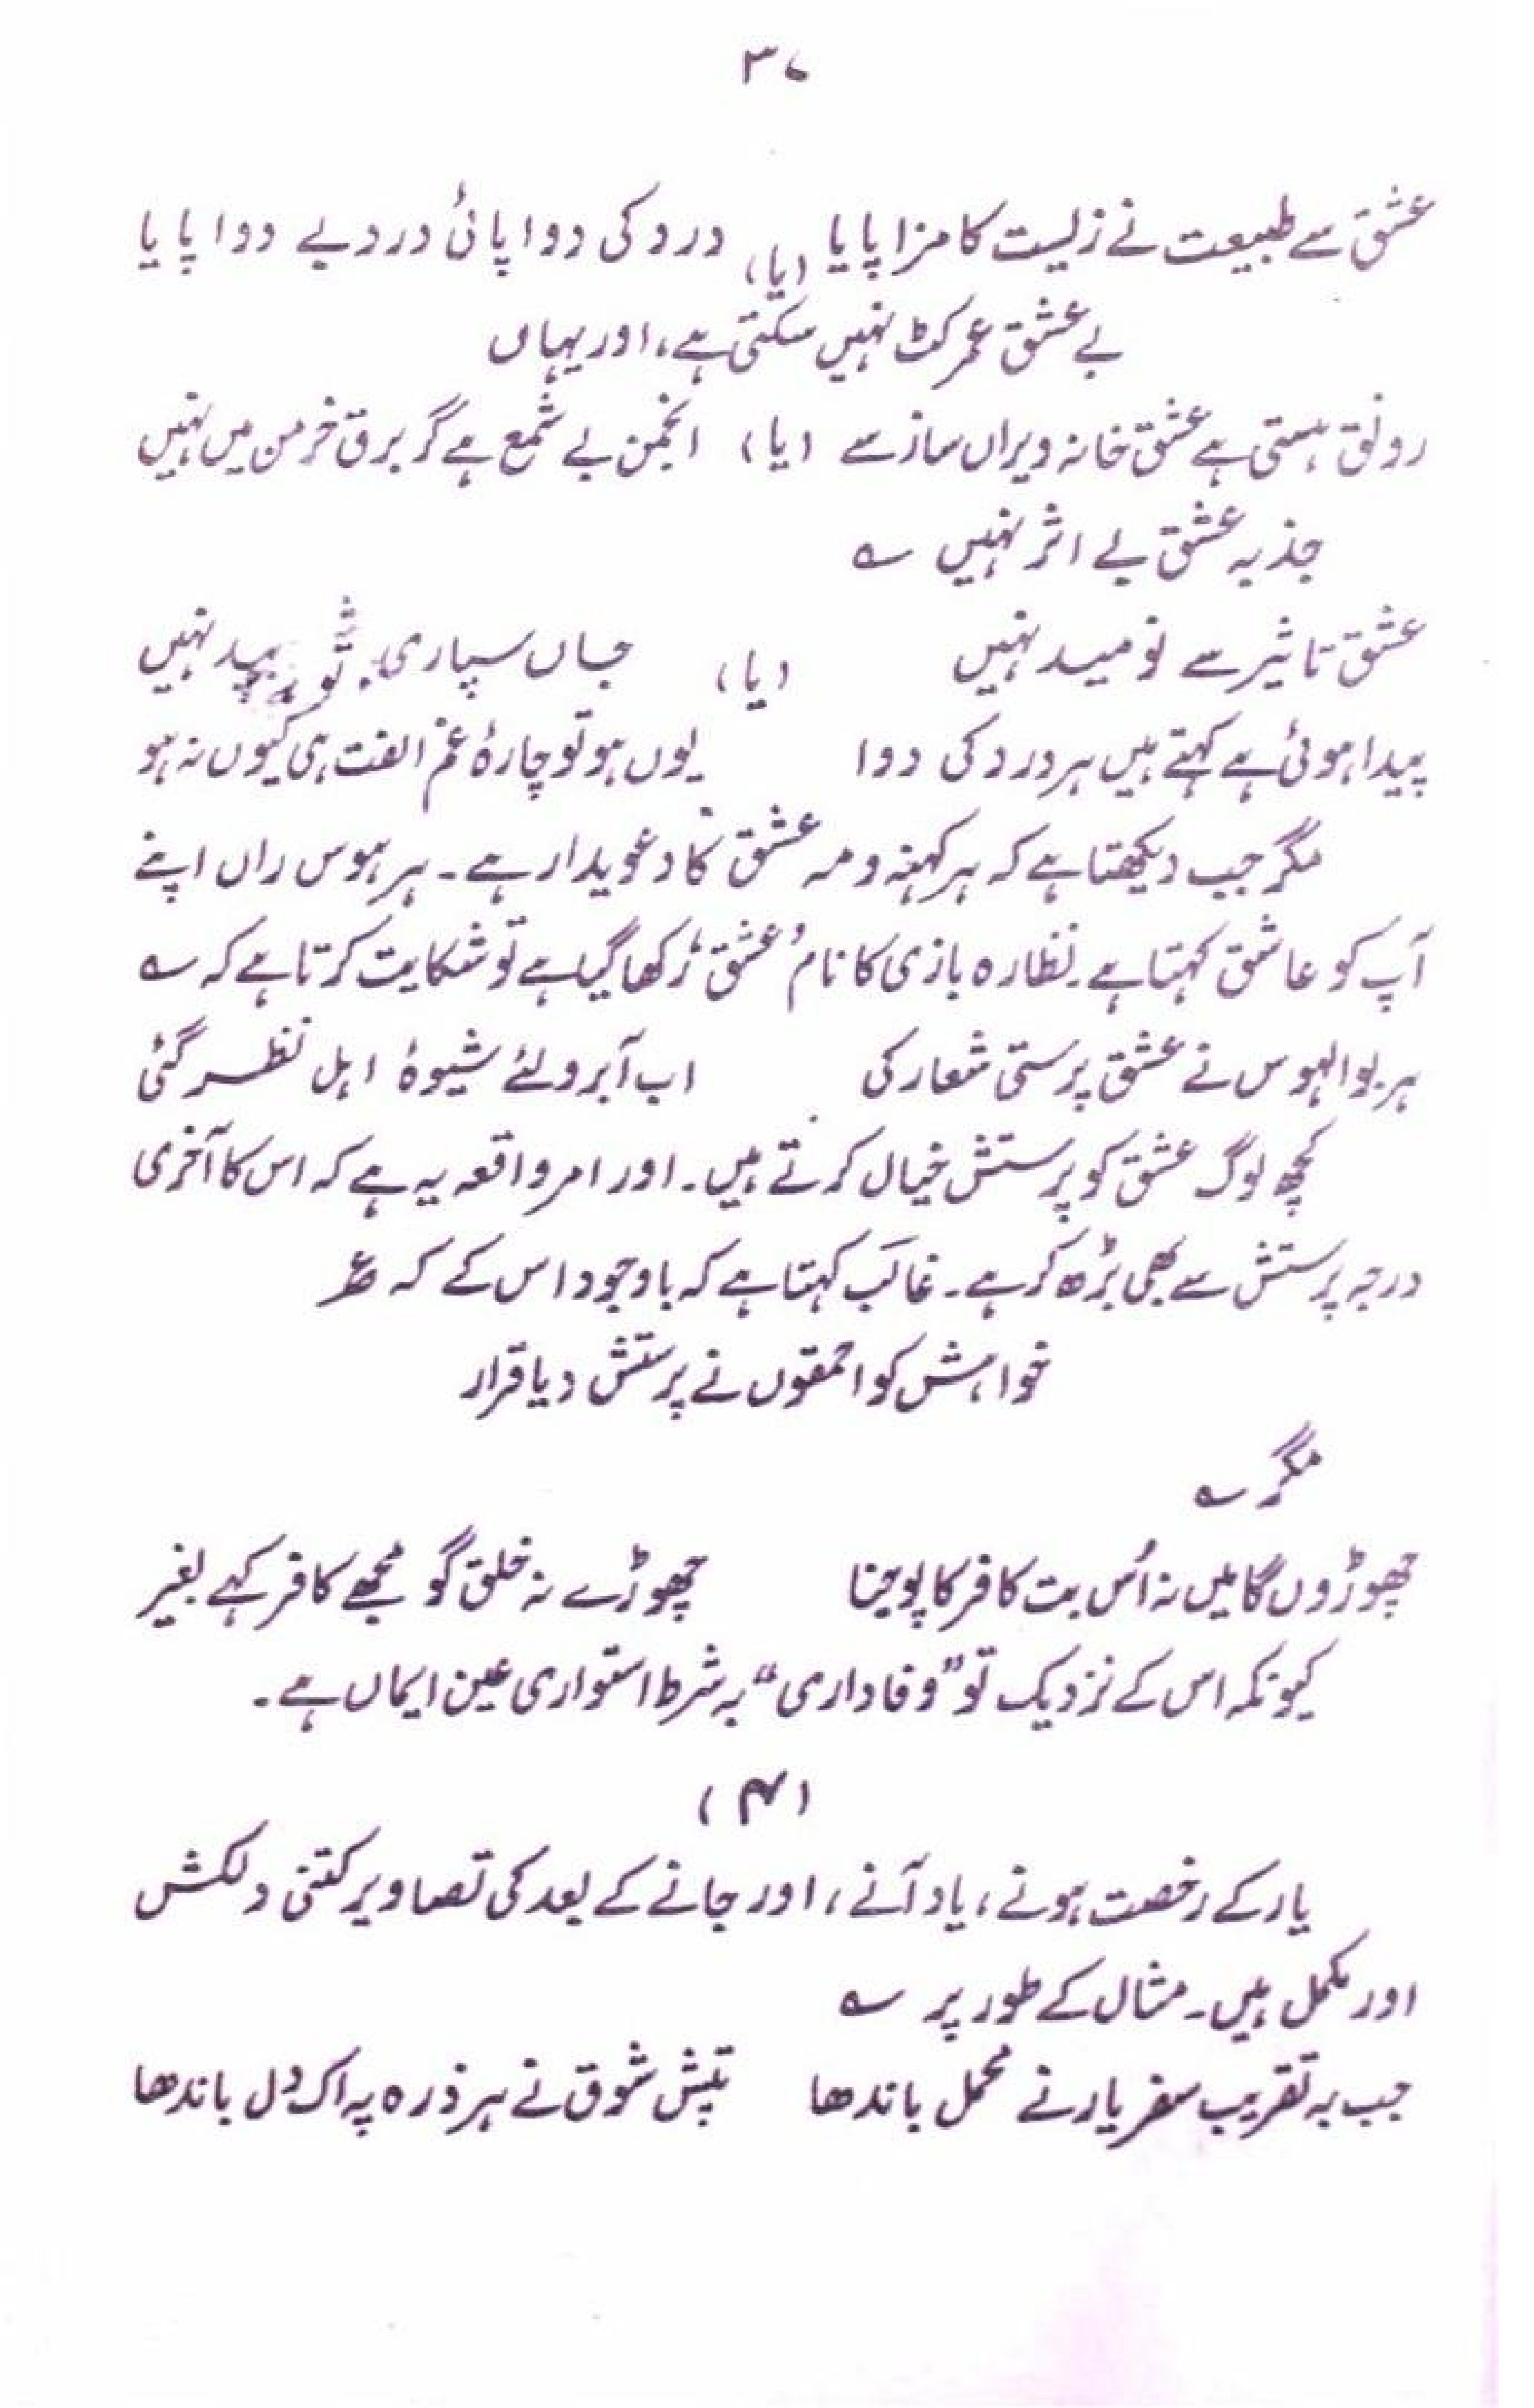 ۳۷
عشق سے طبیعت نے زیست کا مزا پایا (یا) درد کی دوا پائی درد بے دوا پایا
بے عشق عمر کٹ نہیں سکتی ہے، اور یہاں
رونق ہستی ہے عشق خانہ ویراں ساز سے (یا) انجمن بے شمع ہے گر برق خرمن میں نہیں
جذبہ عشق بے اثر نہیں ؎
عشق تاثیر سے نومید نہیں (یا) جاں سپاری شجر بید نہیں
پیدا ہوئی ہے کہتے ہیں ہر درد کی دوا یوں ہو تو چارۂ غم الفت ہی کیوں نہ ہو
مگر جب دیکھتا ہے کہ ہر کہنہ و مہ عشق کا دعویدار ہے۔ ہر ہوس راں اپنے
آپ کو عاشق کہتا ہے۔ نظارہ بازی کا نام ’عشق‘ رکھا گیا ہے تو شکایت کرتا ہے کہ ؎
ہر بوالہوس نے عشق پرستی شعار کی اب آبروئے شیوۂ اہل نظر گئی
کچھ لوگ عشق کو پرستش خیال کرتے ہیں۔ اور امر واقعہ یہ ہے کہ اس کا آخری
درجہ پرستش سے بھی بڑھ کر ہے۔ غالب کہتا ہے کہ باوجود اس کے کہ ؏
خواہش کو احمقوں نے پرستش دیا قرار
مگر ؎
چھوڑوں گا میں نہ اُس بت کافر کا پوجنا چھوڑے نہ خلق گو مجھے کافر کہے بغیر
کیونکہ اس کے نزدیک تو ”وفاداری“ بہ شرط استواری عین ایماں ہے۔
(۴)
یار کے رخصت ہونے، یاد آنے، اور جانے کے بعد کی تصاویر کتنی دلکش
اور مکمل ہیں۔ مثال کے طور پر ؎
جب بہ تقریب سفر یار نے محمل باندھا تپش شوق نے ہر ذرہ پہ اک دل باندھا